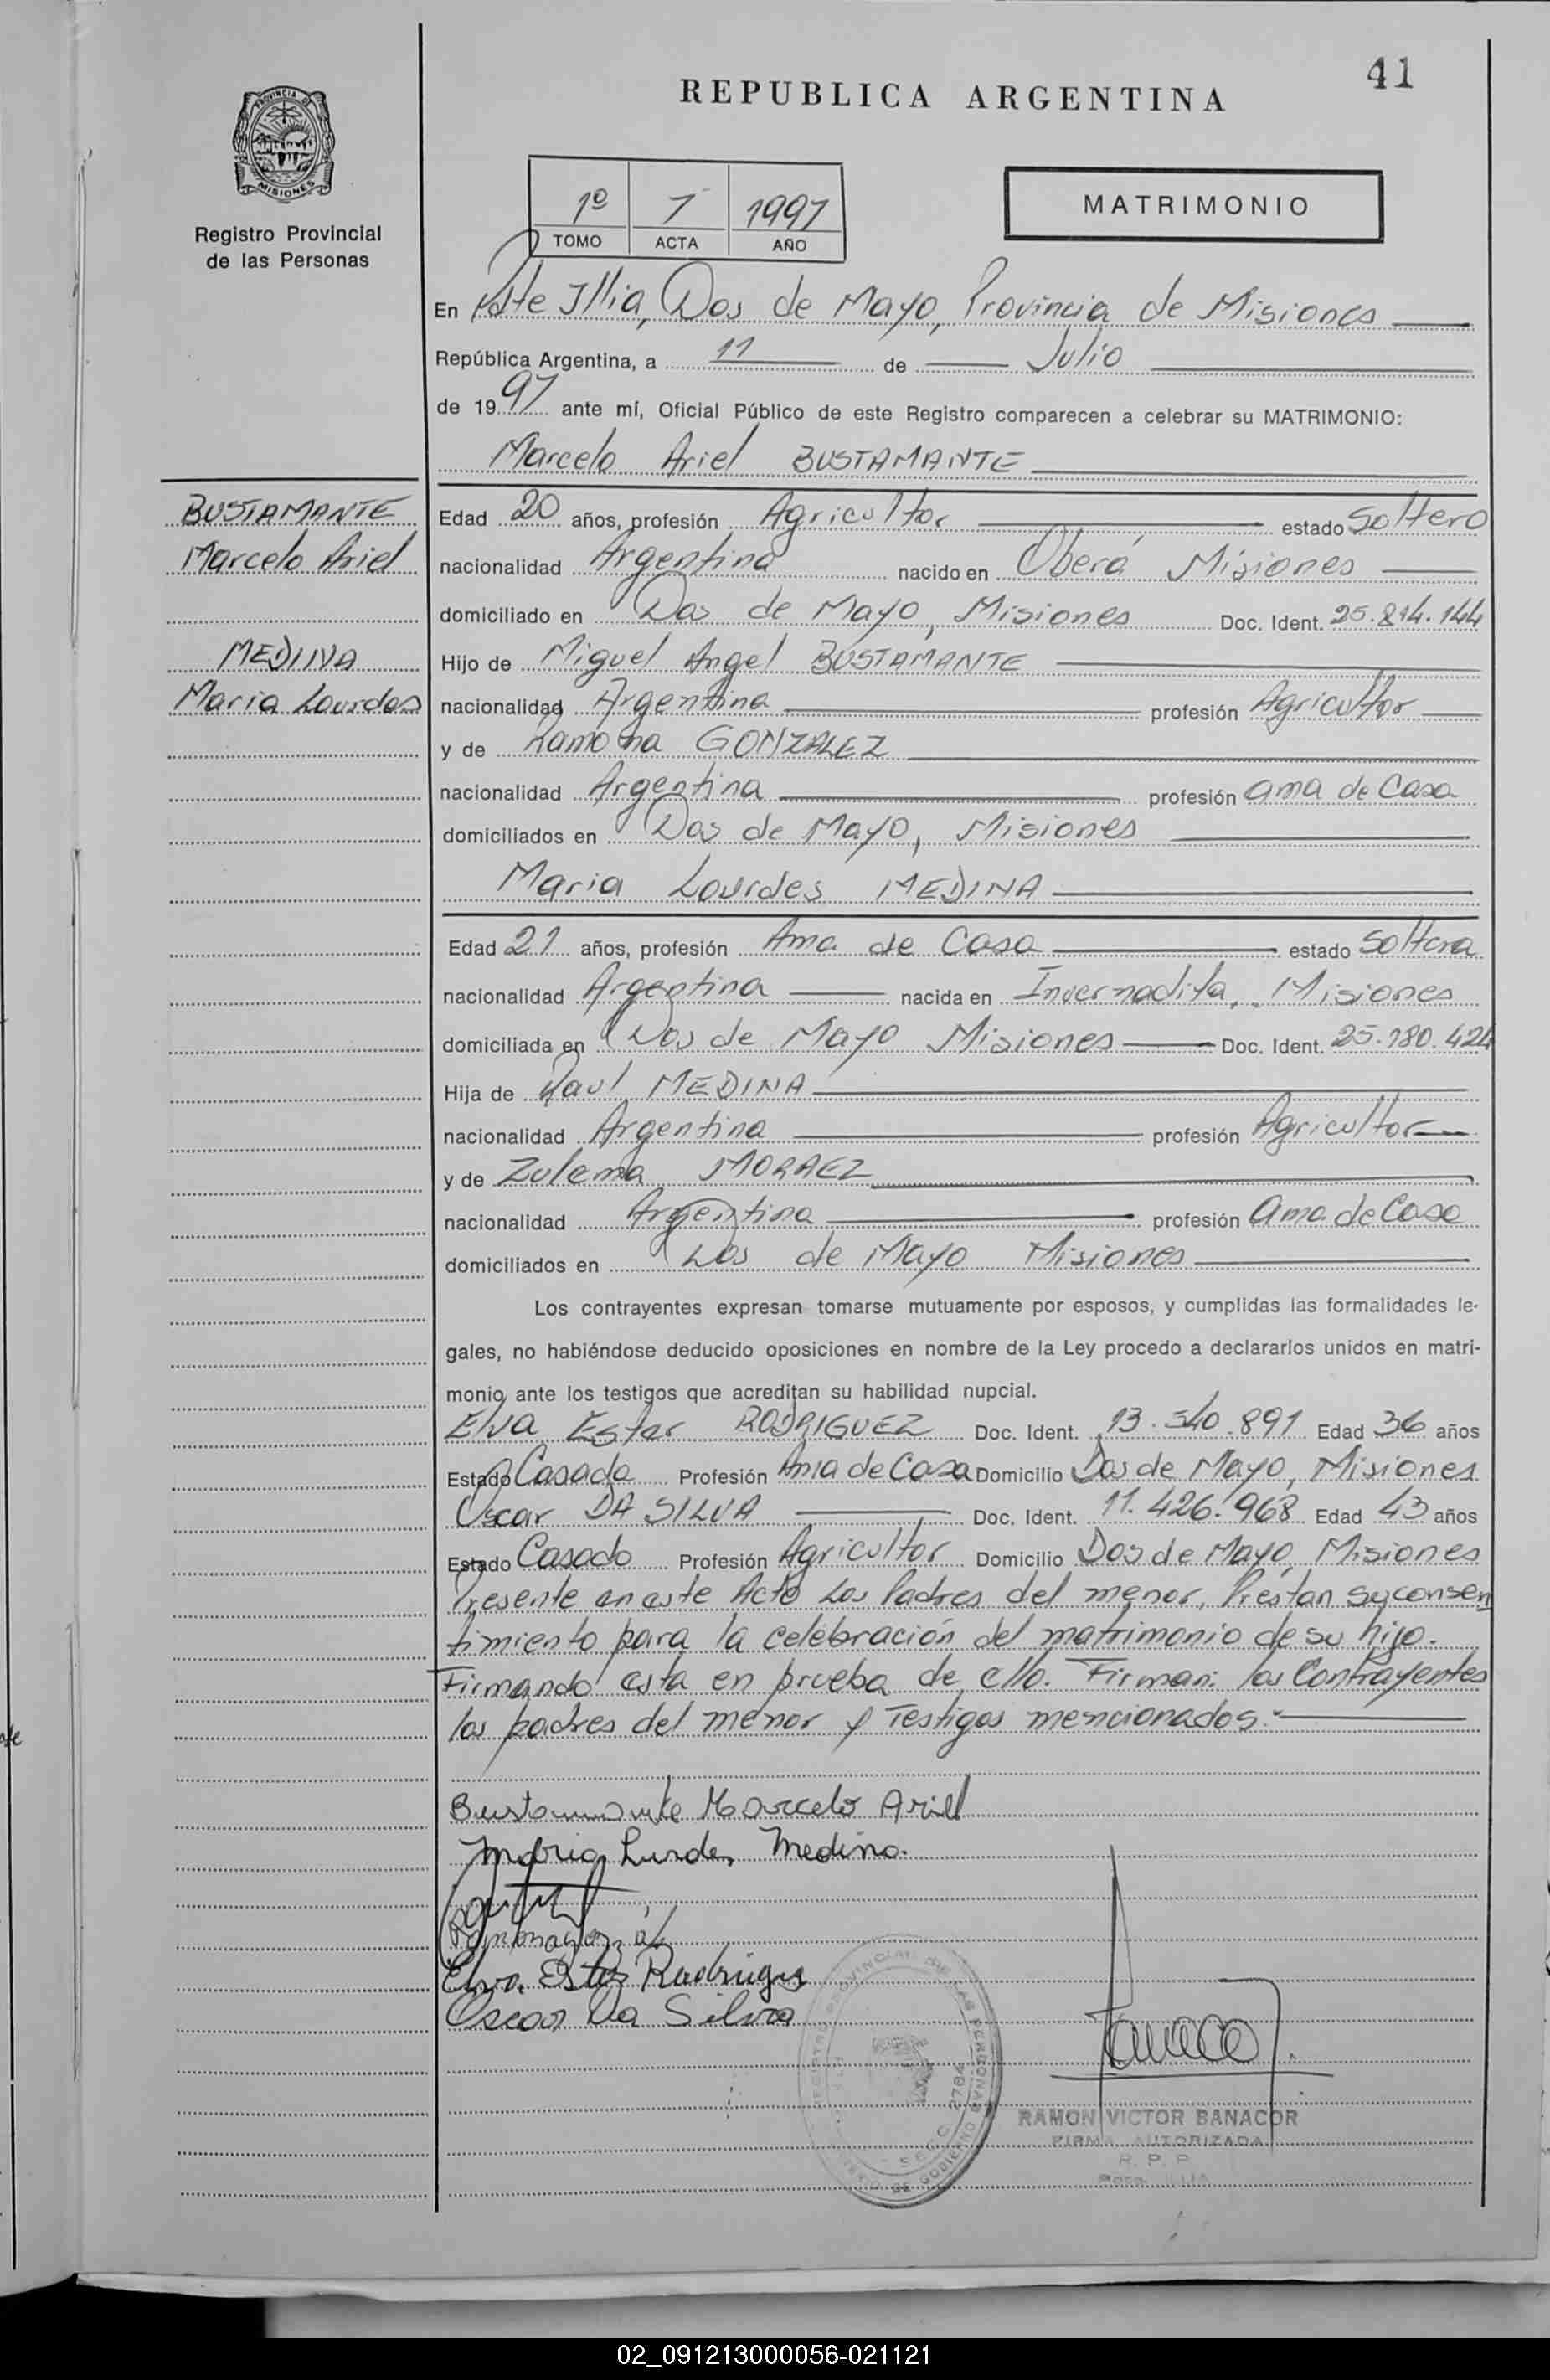 41
REPUBLICA ARGENTINA
PROVINCIA DE
MISIONES
Registro Provincial
de las Personas
1º 7 1997
TOMO ACTA AÑO
MATRIMONIO
En Pdte Illia, Dos de Mayo, Provincia de Misiones
República Argentina, a 11 de Julio
de 1997 ante mí, Oficial Público de este Registro comparecen a celebrar su MATRIMONIO:
Marcelo Ariel BUSTAMANTE
BUSTAMANTE
Marcelo Ariel
MEDINA
Maria Lourdes
Edad 20 años, profesión Agricultor estado Soltero
nacionalidad Argentina nacido en Oberá Misiones
domiciliado en Dos de Mayo, Misiones Doc. Ident. 25.814.144
Hijo de Miguel Angel BUSTAMANTE
nacionalidad Argentina profesión Agricultor
y de Ramona GONZALEZ
nacionalidad Argentina profesión ama de Casa
domiciliados en Dos de Mayo, Misiones
Maria Lourdes MEDINA
Edad 21 años, profesión Ama de Casa estado Soltera
nacionalidad Argentina nacida en Invernadita, Misiones
domiciliada en Dos de Mayo Misiones Doc. Ident. 25.180.424
Hija de Raul MEDINA
nacionalidad Argentina profesión Agricultor
y de Zulema MORAEZ
nacionalidad Argentina profesión Ama de Casa
domiciliados en Dos de Mayo Misiones
Los contrayentes expresan tomarse mutuamente por esposos, y cumplidas las formalidades le-
gales, no habiéndose deducido oposiciones en nombre de la Ley procedo a declararlos unidos en matri-
monio ante los testigos que acreditan su habilidad nupcial.
Elva Ester RODRIGUEZ Doc. Ident. 13.540.891 Edad 36 años
Estado Casada Profesión Ama de Casa Domicilio Dos de Mayo, Misiones
Oscar DA SILVA Doc. Ident. 11.426.968 Edad 43 años
Estado Casado Profesión Agricultor Domicilio Dos de Mayo, Misiones
Presente en este Acto Los Padres del menor, Prestan su consen
timiento para la celebración del matrimonio de su hijo.
Firmando esta en prueba de ello. Firman: los Contrayentes
los padres del menor y Testigos mencionados.
Bustamante Marcelo Ariel
Maria Lurdes Medina.
Elva Ester Rodriguez
Oscar Da Silva
RAMON VICTOR BANACOR
FIRMA AUTORIZADA
R. P. P.
Pdte. ILLIA
02_091213000056-021121